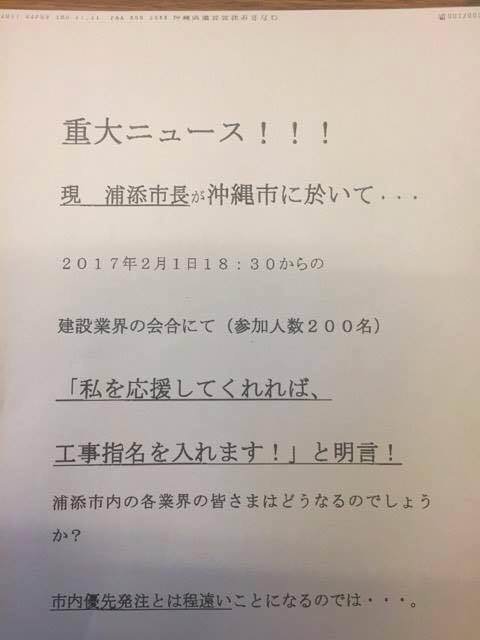 重大ニュース！！！
現　浦添市長が沖縄市に於いて・・・
２０１７年２月１日１８：３０からの
建設業界の会合にて（参加人数２００名）
「私を応援してくれれば、
工事指名を入れます！」と明言！
浦添市内の各業界の皆さまはどうなるのでしょう
か？
市内優先発注とは程遠いことになるのでは・・・。